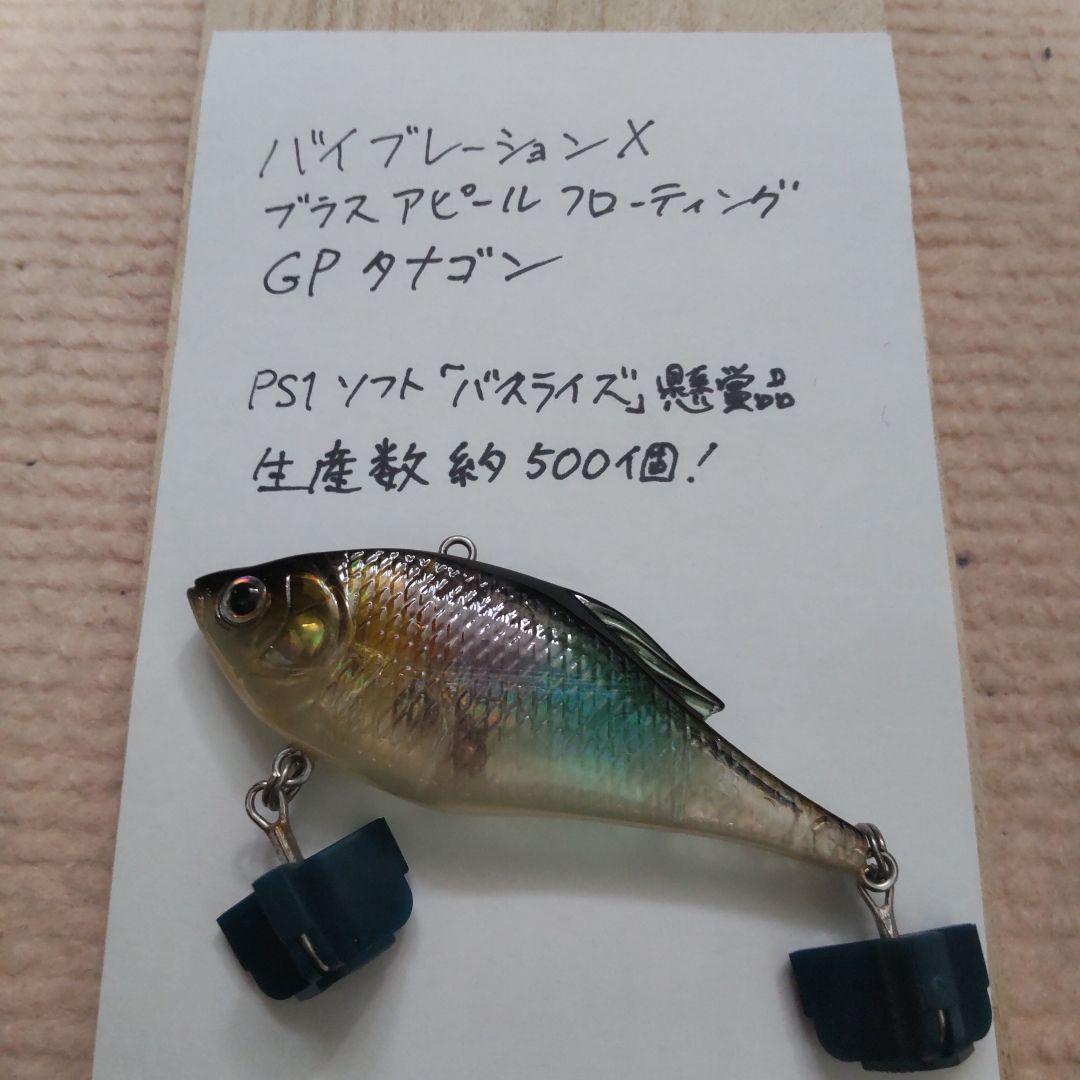 バイブレーションX
ブラスアピール フローティング
GP タナゴン
PS1 ソフト「バスライズ」懸賞品
生産数 約500個！